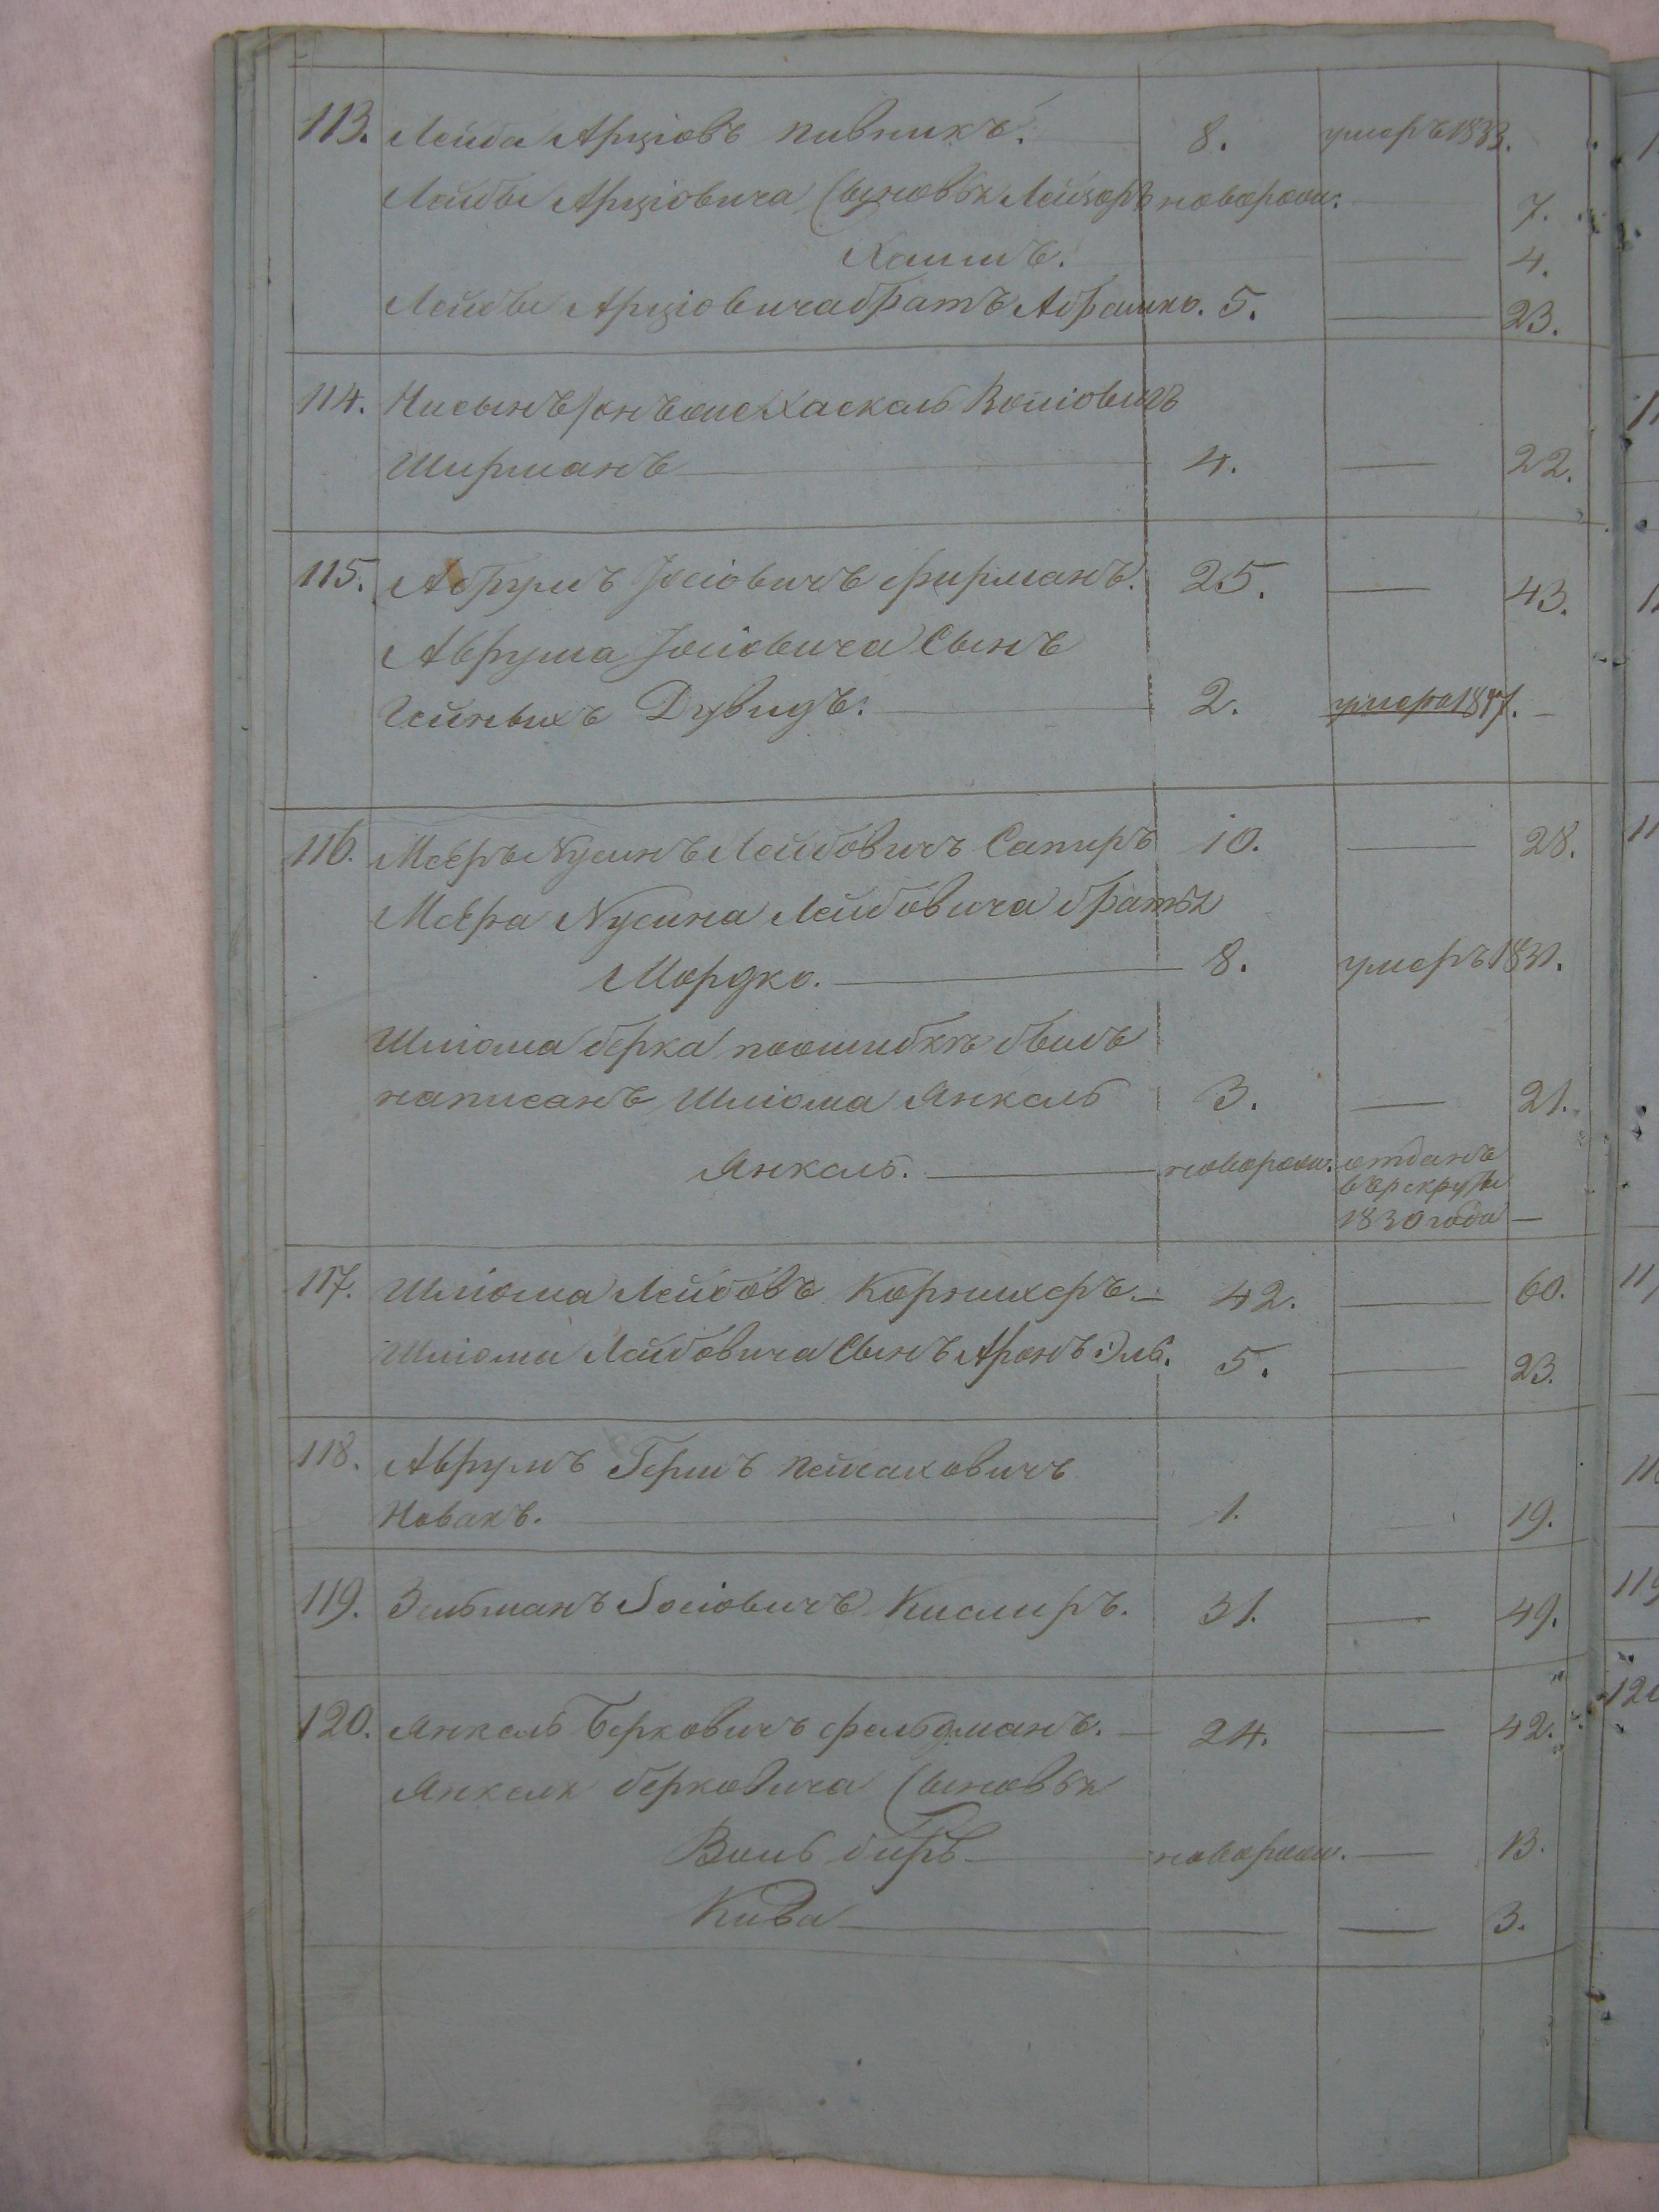 113. Лейба Арціовъ Пивникъ. 8. умеръ 1833.
Лейбы Арціовича Сыновья Лейзоръ новорож. — 7.
Хаимъ. — 4.
Лейбы Арціовича братъ Абрамко. 5. — 23.
114. Нисынъ онъ же Хаскель Волiовичъ
Ширманъ — 4. — 22.
115. Аврумъ Іосіовичъ фирманъ. 25. — 43.
Аврума Іосіовича Сынъ
Дувидъ. — 2. умеръ 18 7. —
116. Мееръ Нусинъ Лейбовичъ Сапиръ 10. — 28.
Меера Нусина Лейбовича братья
Мордко. — 8. умеръ 1831.
Шліома берка поошибкѣ былъ
написанъ Шліома Янкель 3. — 21.
Янкель. — новорож. отданъ
въ рекруты
1830 года —
117. Шліома Лейбовъ Коржихеръ. — 42. — 60.
Шліомы Лейбовича Сынъ Аронъ Эль. 5. — 23.
118. Аврумъ Гершъ Пейсаховичъ
Новакъ. — 1. — 19.
119. Зельманъ Іосіовичъ 31. — 49.
120. Янкель Берковичъ фельдманъ. — 24. — 42.
Янкеля берковича Сыновья
Воль биръ — новорож. — 13.
Кива — — — 3.